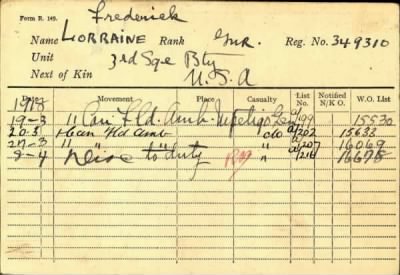 Form R. 149.
Frederick
Name LORRAINE Rank Gnr. Reg. No. 349310
Unit 3rd Sge Bty
Next of Kin U.S.A
Date Movement. Place Casualty List No. Notified N/K O. W.O. List
1918
19-3 11 Can Fld. Amb. Impetigo a/199 15530
20.3 Can Fld Amb c/o a/202 15633
27-3 " " " a/207 16069
8-4 Disc to duty " 216 16678